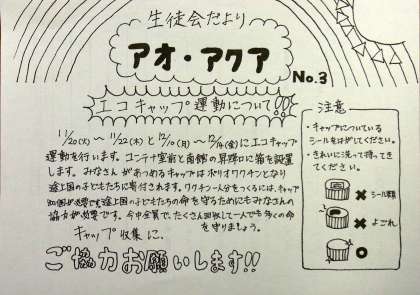 生徒会だより
アオ・アクア
No.3
エコキャップ運動について!!
11/20(火)〜11/22(木)と12/10(月)〜12/14(金)にエコキャップ
運動を行います。コンテナ室前と南館の昇降口に箱を設置
します。みなさんがあつめるキャップはポリオワクチンとなり
途上国の子どもたちに寄付されます。ワクチン一人分をつくるには、キャップ
必要です。途上国の子どもたちの命を守るためにもみなさんの
協力が必要です。今中全員で、たくさん回収して一人でも多くの命
を守りましょう。
キャップ収集に、
ご協力お願いします!!
注意
・キャップについている
シールをはがしてください。
・きれいに洗って持ってき
てください。
シール類
よごれ